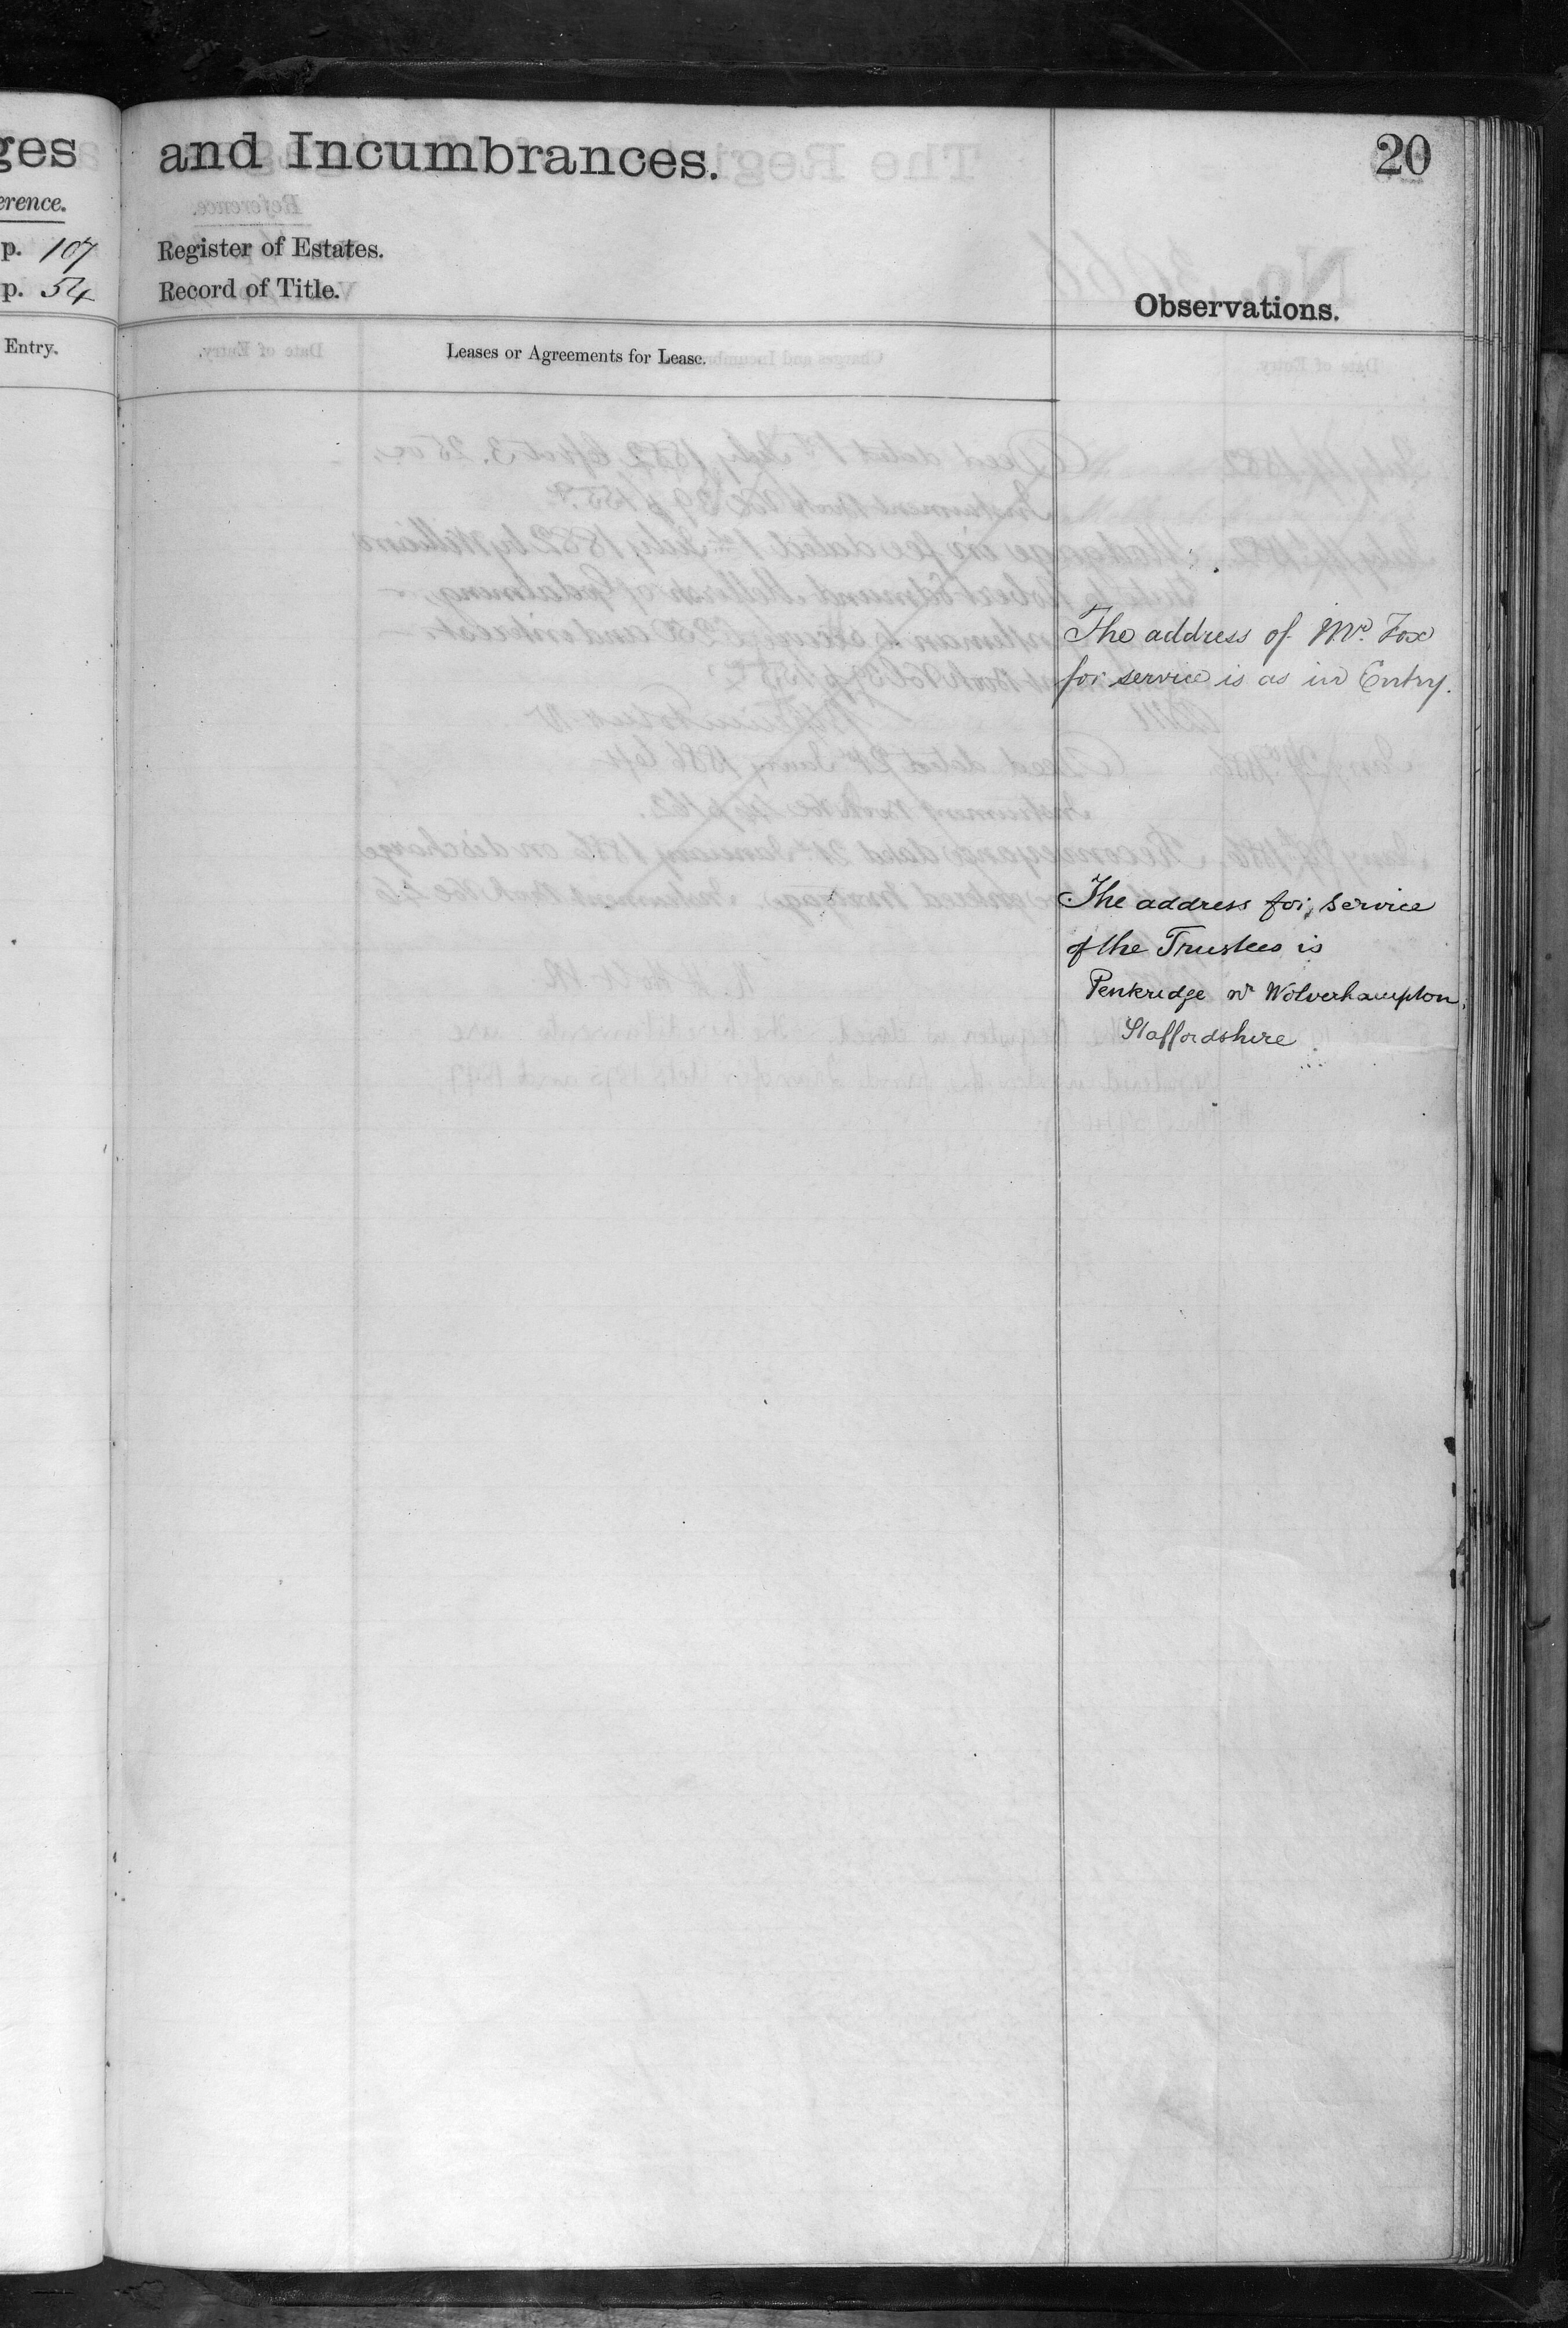 ges
erence.
p. 107
p. 54
Entry.
and Incumbrances.
20
Register of Estates.
Record of Title.
Observations.
Leases or Agreements for Lease.
The address of Mr. Fox
for service is as in Entry.
The address for service
of the Trustees is
Penkridge nr Wolverhampton
Staffordshire